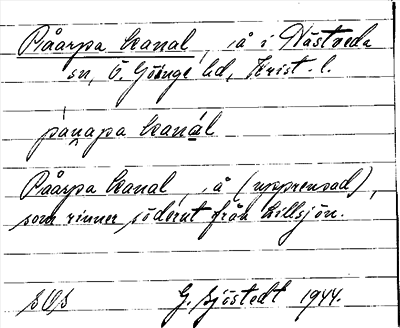 Påarpa kanal, å i Nästveda
sn, Ö. Göinge hd, Krist. l.
pånapa kanál
Påarpa kanal, å (upprensad),
som rinner söderut från Lillsjön.
SOS G. Sjöstedt 1944.